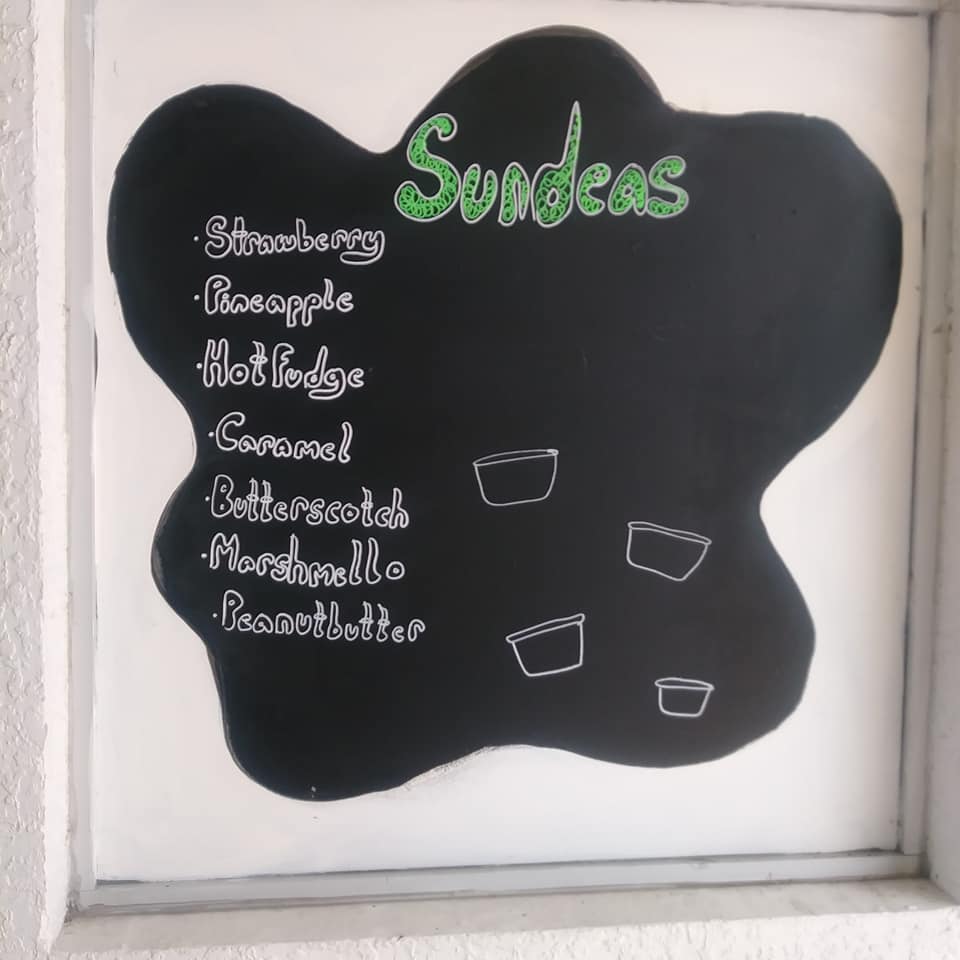 Sundeas
·Strawberry
·Pineapple
·Hot Fudge
·Caramel
·Butterscotch
·Marshmello
·Peanutbutter